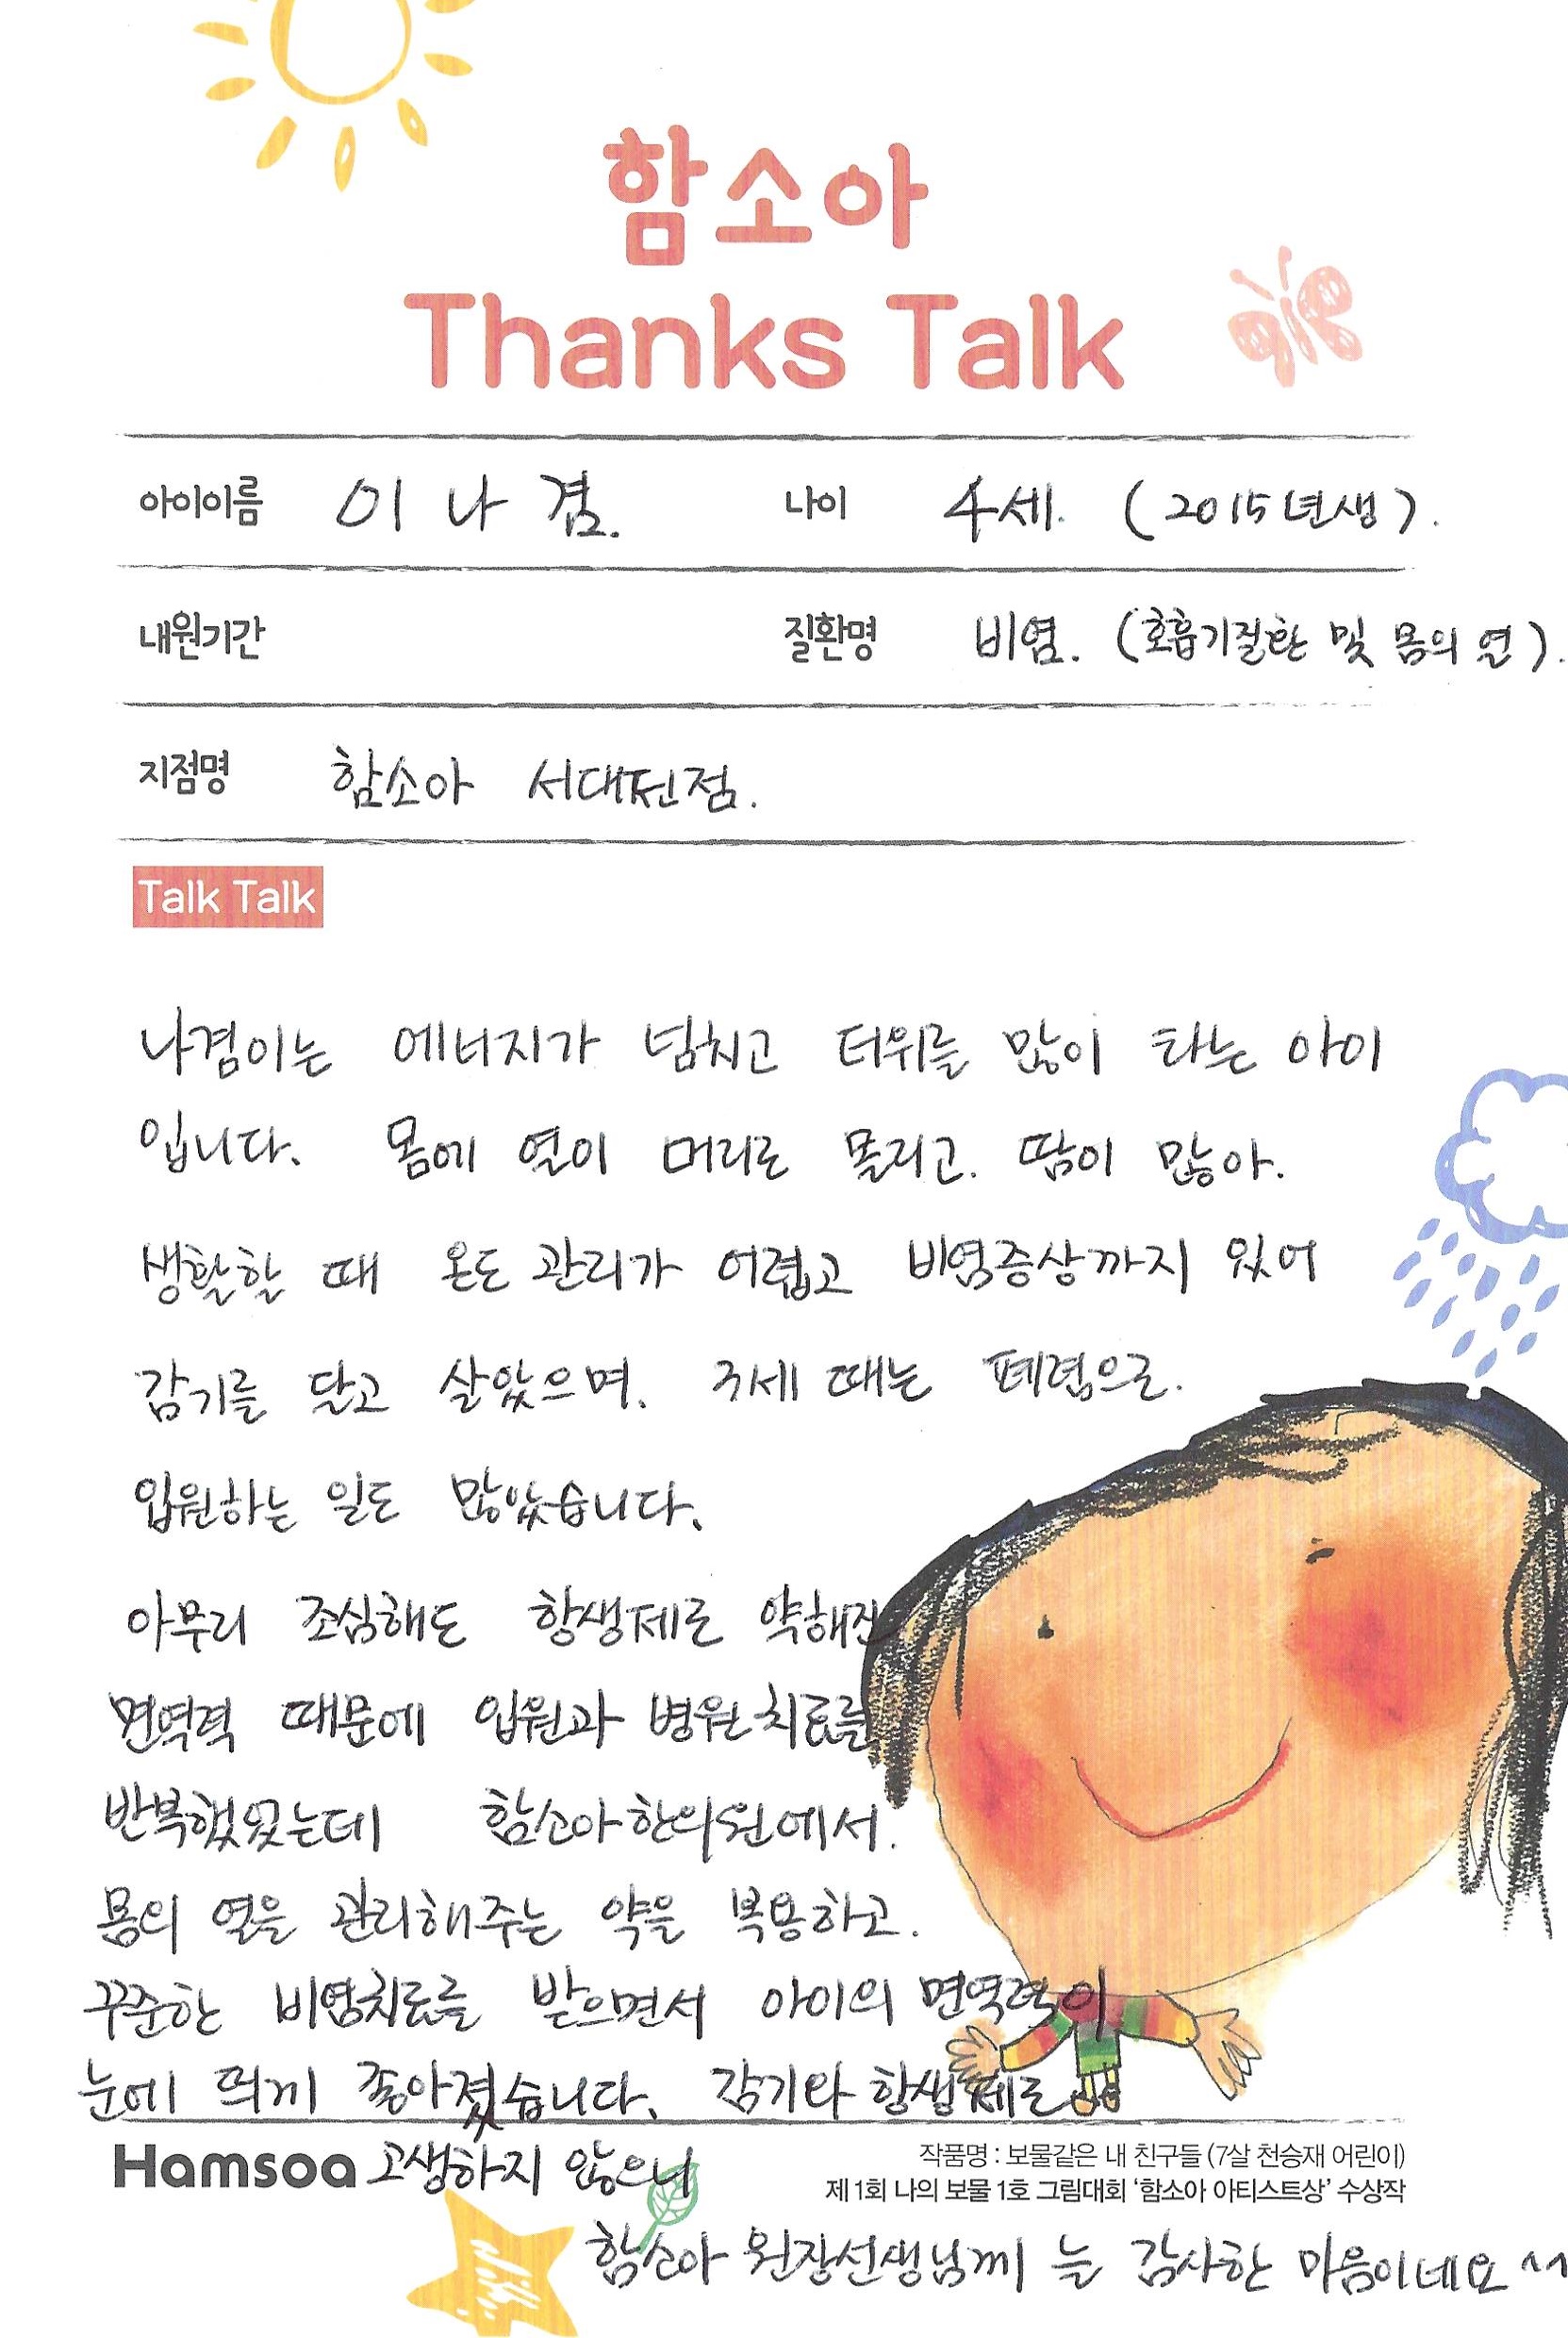 함소아
Thanks Talk
아이이름 이 나 겸. 나이 4세. (2015년생).
내원기간 질환명 비염. (호흡기질환 및 몸의 열).
지점명 함소아 서대전점.
Talk Talk
나겸이는 에너지가 넘치고 더위를 많이 타는 아이
입니다. 몸에 열이 머리로 몰리고. 땀이 많아.
생활할 때 온도 관리가 어렵고 비염증상까지 있어
감기를 달고 살았으며. 3세 때는 폐렴으로.
입원하는 일도 많았습니다.
아무리 조심해도 항생제로 약해진
면역력 때문에 입원과 병원치료를
반복했었는데 함소아한의원에서.
몸의 열을 관리해주는 약을 복용하고.
꾸준한 비염치료를 받으면서 아이의 면역력이
눈에 띄게 좋아졌습니다. 감기와 항생제로
Hamsoa 고생하지 않으니
작품명 : 보물같은 내 친구들 (7살 천승재 어린이)
제 1회 나의 보물 1호 그림대회 '함소아 아티스트상' 수상작
함소아 원장선생님께 늘 감사한 마음이네요